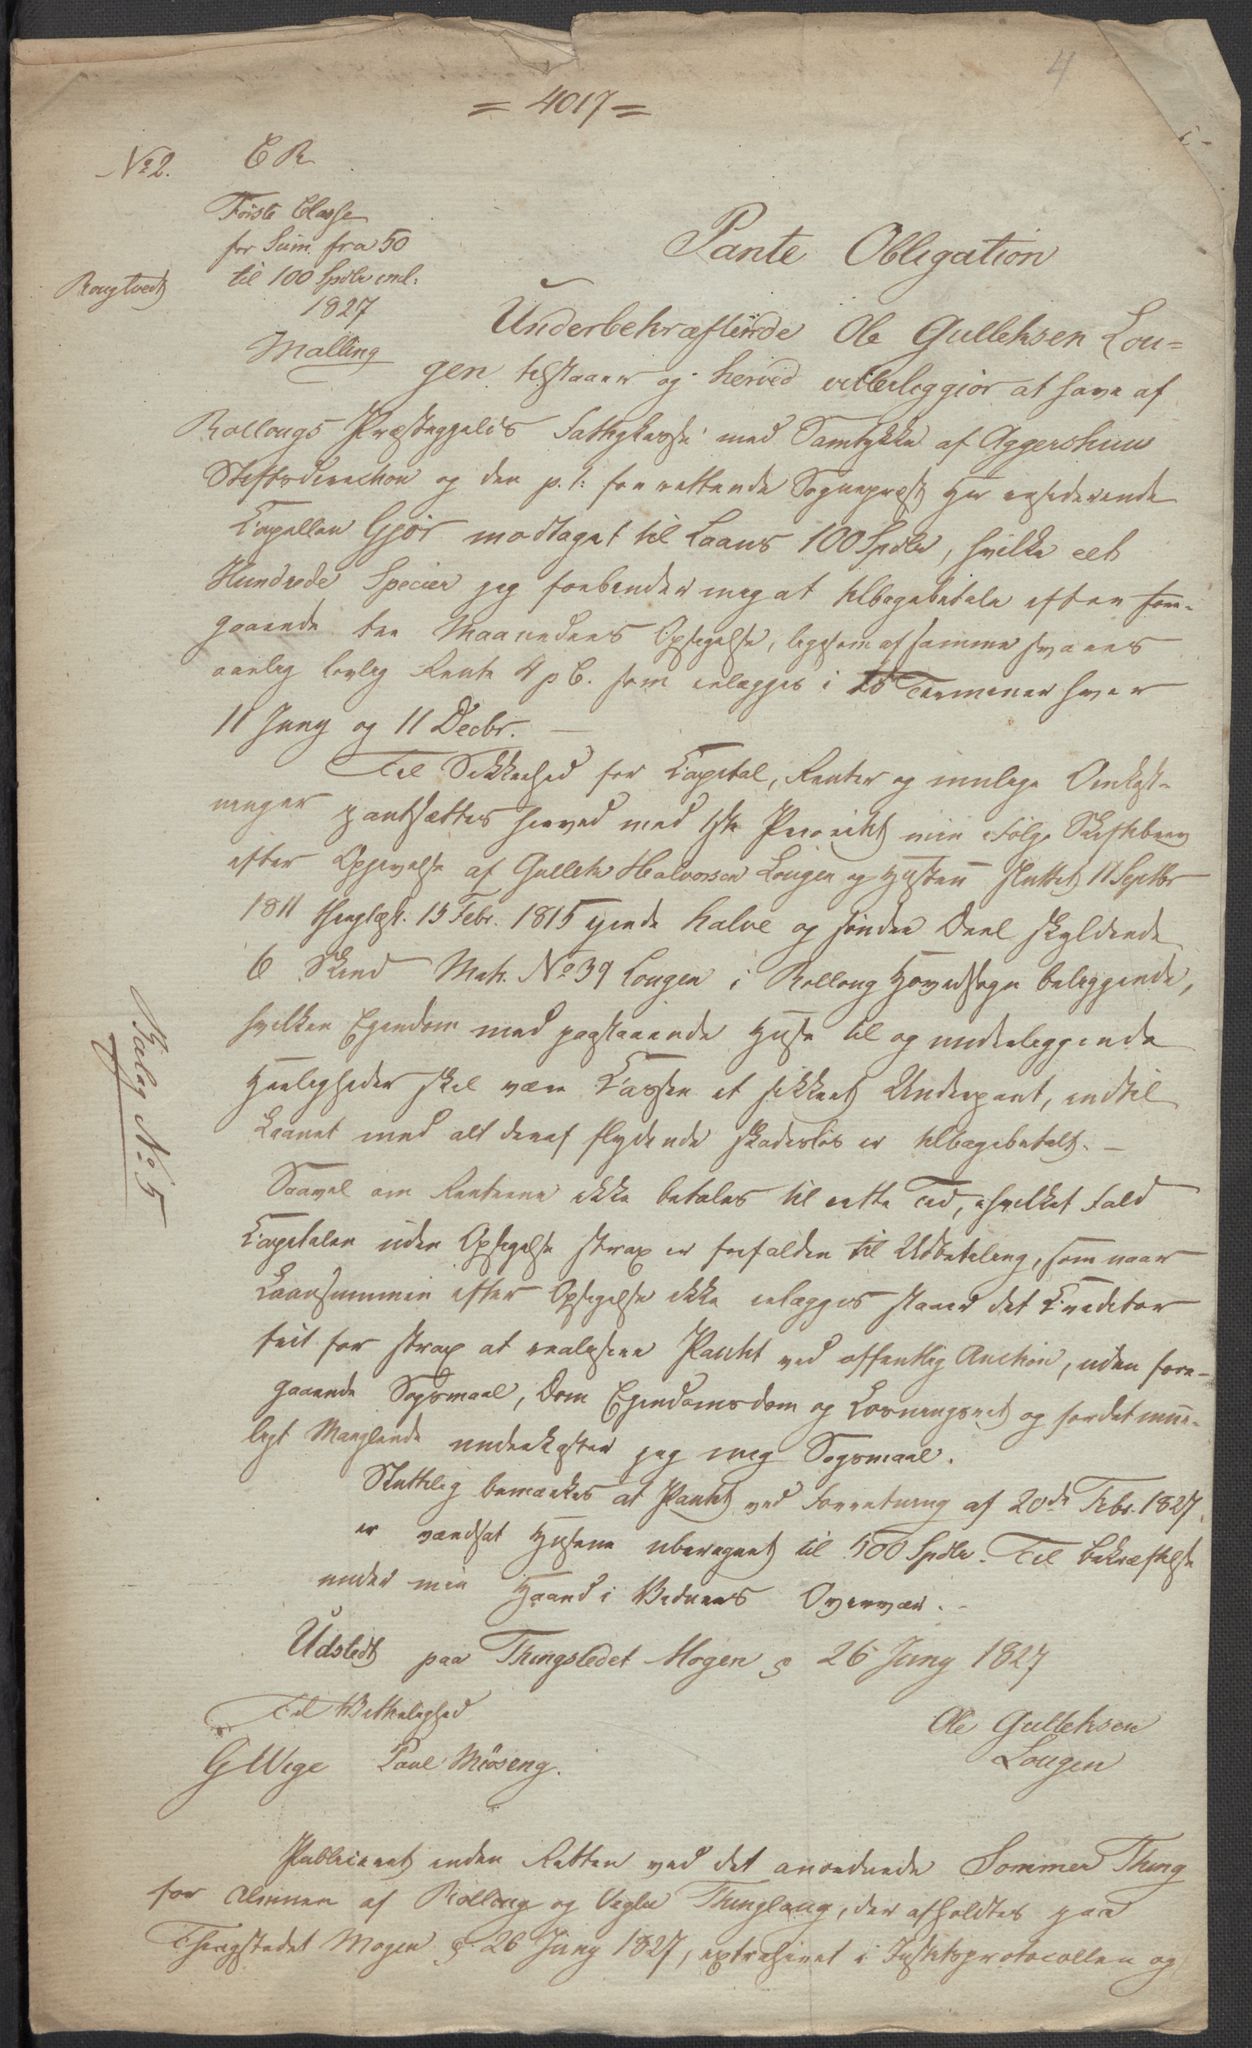 4
= 4017 =
No 2. C R
Förste Classe
for Sum. fra 50
til 100 Spdlr incl:
Rougtvedt
1827
Malling
Pante Obligation
Underbekræftende Ole Gulleksen Lou=
gen tilstaaer og herved vitterliggiör at have af
Rollougs Præstegjelds Fattigkasse med Samtykke af Aggershuus
Stiftsdirection og den p. t: forrettende Sognepræst Hr residerende
Capellan Gjör modtaget til Laans 100 Spdlr, hvilke eet
Hundrede Specier jeg forbinder mig at tilbagebetale efter fore-
gaaende tre Maaneders Opsigelse, ligesom af samme svares
aarlig lovlig Rente 4 p C. som erlægges i to Terminer hver
11 Juny og 11 Decbr. —
Til Sikkerhed for Capital, Renter og muelige Omkost-
ninger pantsættes herved med 1ste Prioritet min ifölge Skiftebrev
efter Opgivelse af Gullek Halvorsen Lougen og Hustru sluttet 11 Septbr
1811 thinglæst 15 Febr. 1815 eiende halve og söndre Deel skyldende
6 Skind Matr. No 39 Lougen i Rolloug Hovedsogn beliggende,
hvilken Eiendom med paastaaende Huse til og underliggende
Herligheder skal være Cassen et sikkert Underpant, indtil
Laanet med alt deraf flydende skadeslös er tilbagebetalt. —
Saavel om Renterne ikke betales til rette Tid, i hvilket Fald
Capitalen uden Opsigelse strax er forfalden til Udbetaling, som naar
Laansummen efter Opsigelse ikke erlægges staaer det Creditor
frit for strax at realisere Pantet ved offentlig Auction, uden fore-
gaaende Sögsmaal, Dom Eiendomsdom og Lösningsret og for det mue-
ligt Manglende underkaster jeg mig Sögsmaal.
Sluttelig bemærkes at Pantet ved Forretning af 20de Febr. 1827
er værdsat Husene uberegnet til 500 Spdlr. Til Bekræftelse
under min Haand i Vidners Overvær. -
Udstedt paa Thingstedet Mogen d 26 Juny 1827
Til Vitterlighed
Ole Gulleksen
Lougen
G Wege Paul Miöseng.
Bilag No 5
Publiceret inden Retten ved det anordnede Sommer Thing
for Almuen af Rolloug og Vegli Thinglaug, der afholdtes paa
Thingstedet Mogen d 26 Juny 1827, extraheret i Justitsprotocollen og